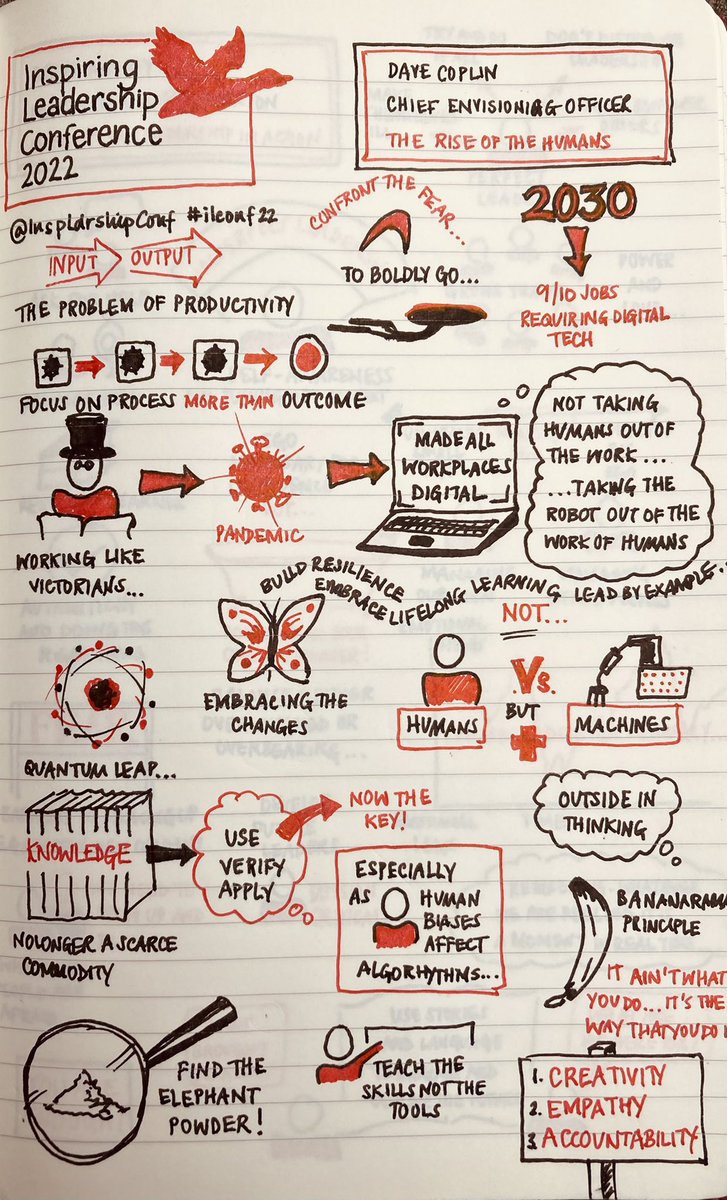 Inspiring
Leadership
Conference
2022
DAVE COPLIN
CHIEF ENVISIONING OFFICER
THE RISE OF THE HUMANS
@InspLdrshipConf #ilconf22
INPUT OUTPUT
THE PROBLEM OF PRODUCTIVITY
CONFRONT THE FEAR...
TO BOLDLY GO...
2030
9/10 JOBS
REQUIRING DIGITAL
TECH
FOCUS ON PROCESS MORE THAN OUTCOME
WORKING LIKE
VICTORIANS...
PANDEMIC
MADE ALL
WORKPLACES
DIGITAL
NOT TAKING
HUMANS OUT OF
THE WORK...
...TAKING THE
ROBOT OUT OF THE
WORK OF HUMANS
BUILD RESILIENCE
EMBRACE LIFELONG LEARNING
LEAD BY EXAMPLE...
QUANTUM LEAP...
EMBRACING THE
CHANGES
NOT...
HUMANS
Vs.
BUT
MACHINES
KNOWLEDGE
NO LONGER A SCARCE
COMMODITY
USE
VERIFY
APPLY
NOW THE
KEY!
ESPECIALLY
AS HUMAN
BIASES
AFFECT
ALGORHYTHMS...
OUTSIDE IN
THINKING
BANANARAMA
PRINCIPLE
IT AIN'T WHAT
YOU DO... IT'S THE
WAY THAT YOU DO
FIND THE
ELEPHANT
POWDER!
TEACH THE
SKILLS NOT THE
TOOLS
1. CREATIVITY
2. EMPATHY
3. ACCOUNTABILITY